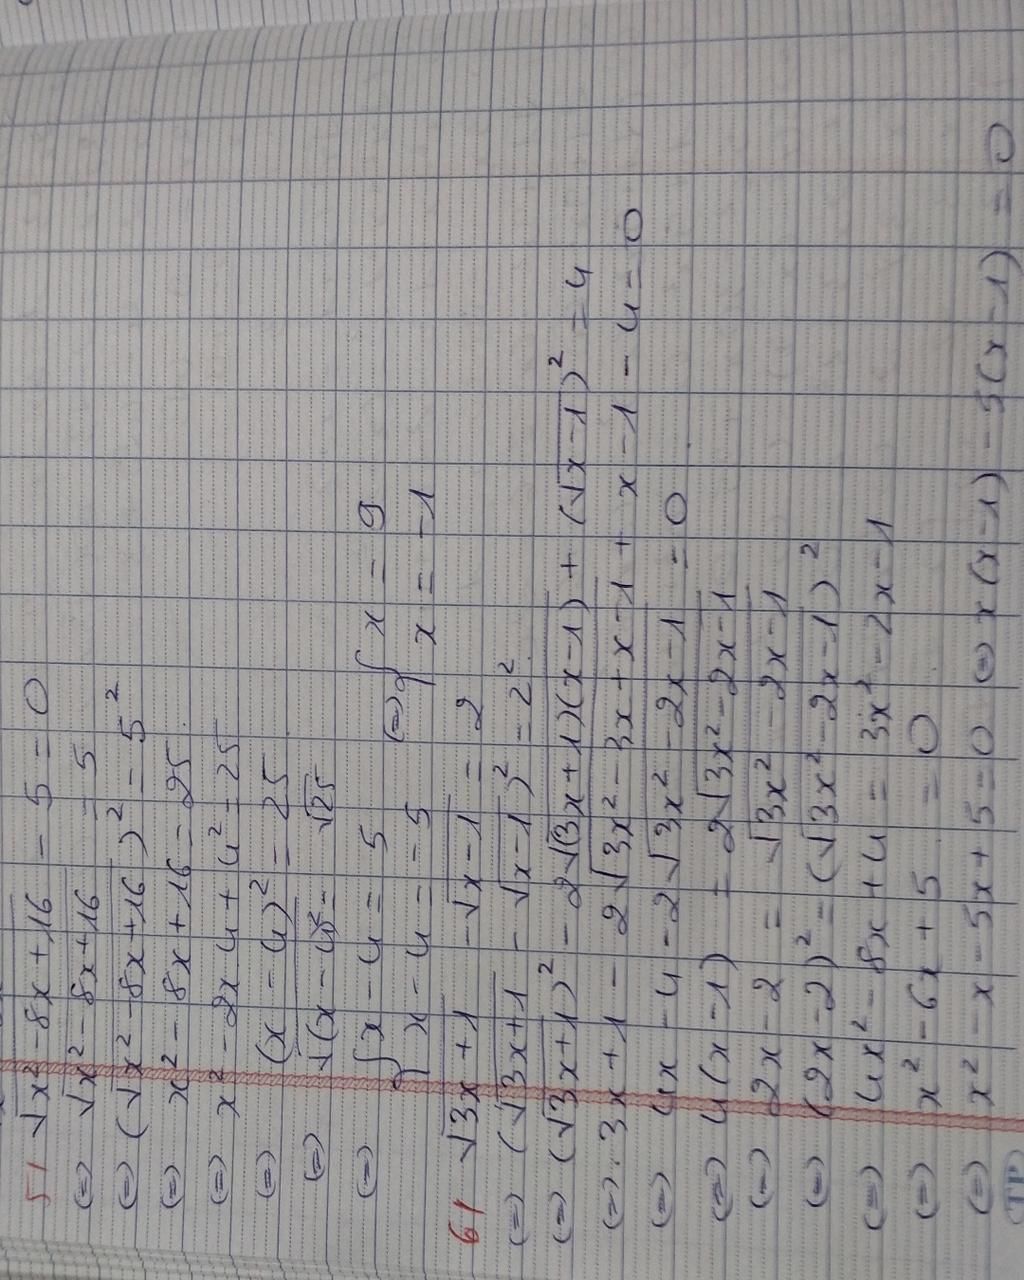 5/ √x² - 8x + 16 - 5 = 0
(=) √x² - 8x + 16 = 5
(=) (√x² - 8x + 16)² = 5²
(=) x² - 8x + 16 = 25
(=) x² - 2x4 + 4² = 25
(=) (x - 4)² = 25
(=) √(x - 4)² = √25
(=) [ x - 4 = 5 (=) [ x = 9
x - 4 = -5 x = -1
6/ √3x + 1 - √x - 1 = 2
(=) (√3x + 1 - √x - 1)² = 2²
(=) (√3x + 1)² - 2√(3x + 1)(x - 1) + (√x - 1)² = 4
(=) 3x + 1 - 2√3x² - 3x + x - 1 + x - 1 - 4 = 0
(=) 4x - 4 - 2√3x² - 2x - 1 = 0
(=) 4(x - 1) = 2√3x² - 2x - 1
(=) 2x - 2 = √3x² - 2x - 1
(=) (2x - 2)² = (√3x² - 2x - 1)²
(=) 4x² - 8x + 4 = 3x² - 2x - 1
(=) x² - 6x + 5 = 0
(=) x² - x - 5x + 5 = 0 (=) x(x - 1) - 5(x - 1) = 0
TP